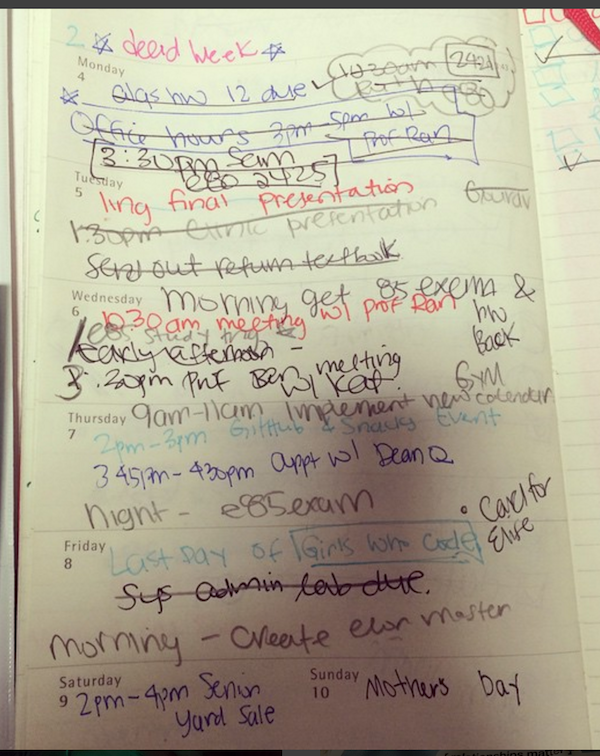 2 dead week
Monday
4
10:30am 2421
algs hw 12 due
Office hours 3pm-5pm w/
Prof Ran
3:30pm Sam
e80 2425
Tuesday
5
ling final presentation
1:30pm clinic presentation
Send out return textbook
Wednesday
6
Morning get 85 exam &
hw
Back
10:30am meeting w/ Prof Ran
e85 study
early afternoon -
3:30pm Prof Ben meeting
w/ Kat
Gym
Thursday
7
9am-11am Implement new calendar
2pm-3pm GitHub & Snacks Event
3:45pm-430pm appt w/ Dean Q
Night - e85 exam
• Card for
Elise
Friday
8
Last Day of Girls Who Code
Sys admin lab due.
morning - Create elon master
Saturday
9
2pm-4pm Senior
Yard Sale
Sunday
10
Mothers Day